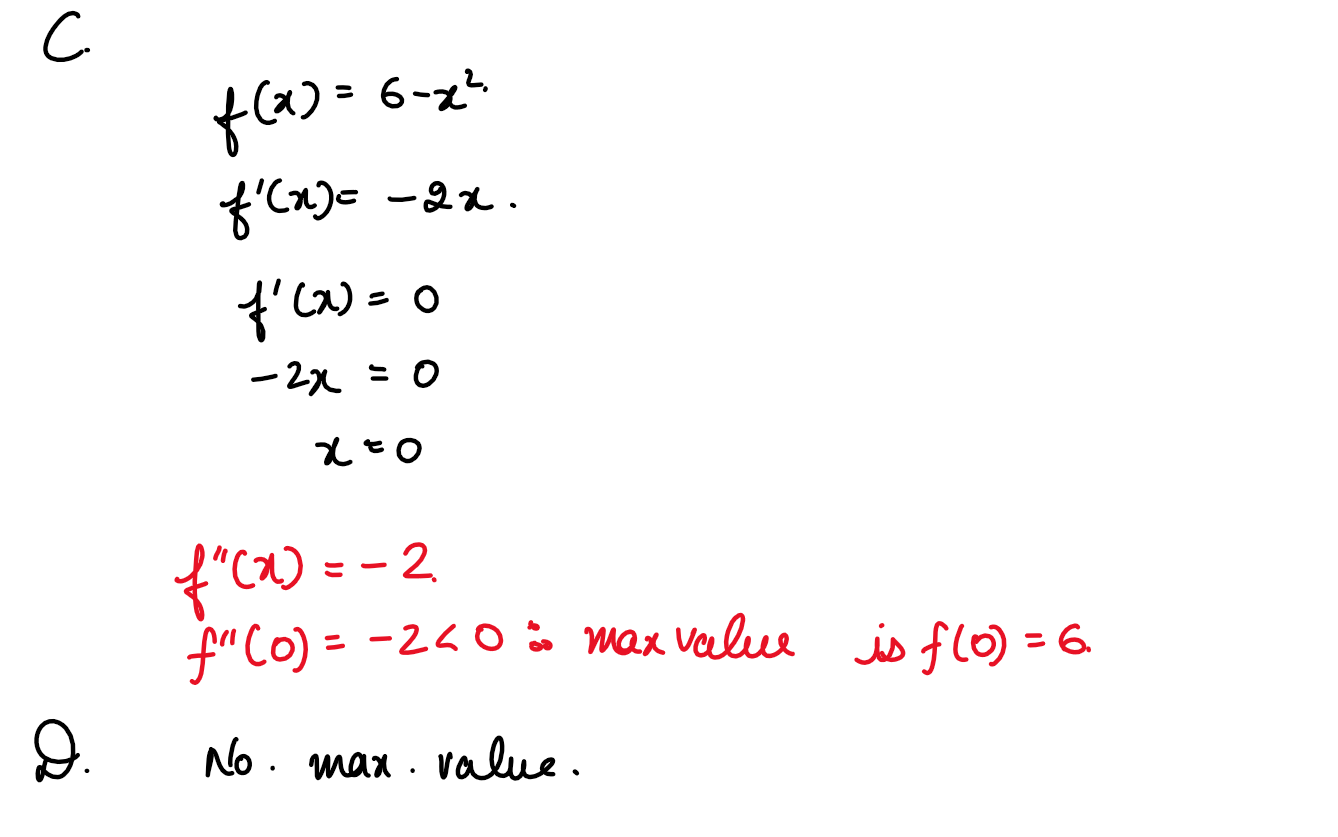 C.
f(x) = 6-x².
f'(x) = -2x.
f'(x) = 0
-2x = 0
x = 0
f"(x) = -2.
f"(0) = -2 < 0 ∴ max value is f(0) = 6.
D. No. max. value.